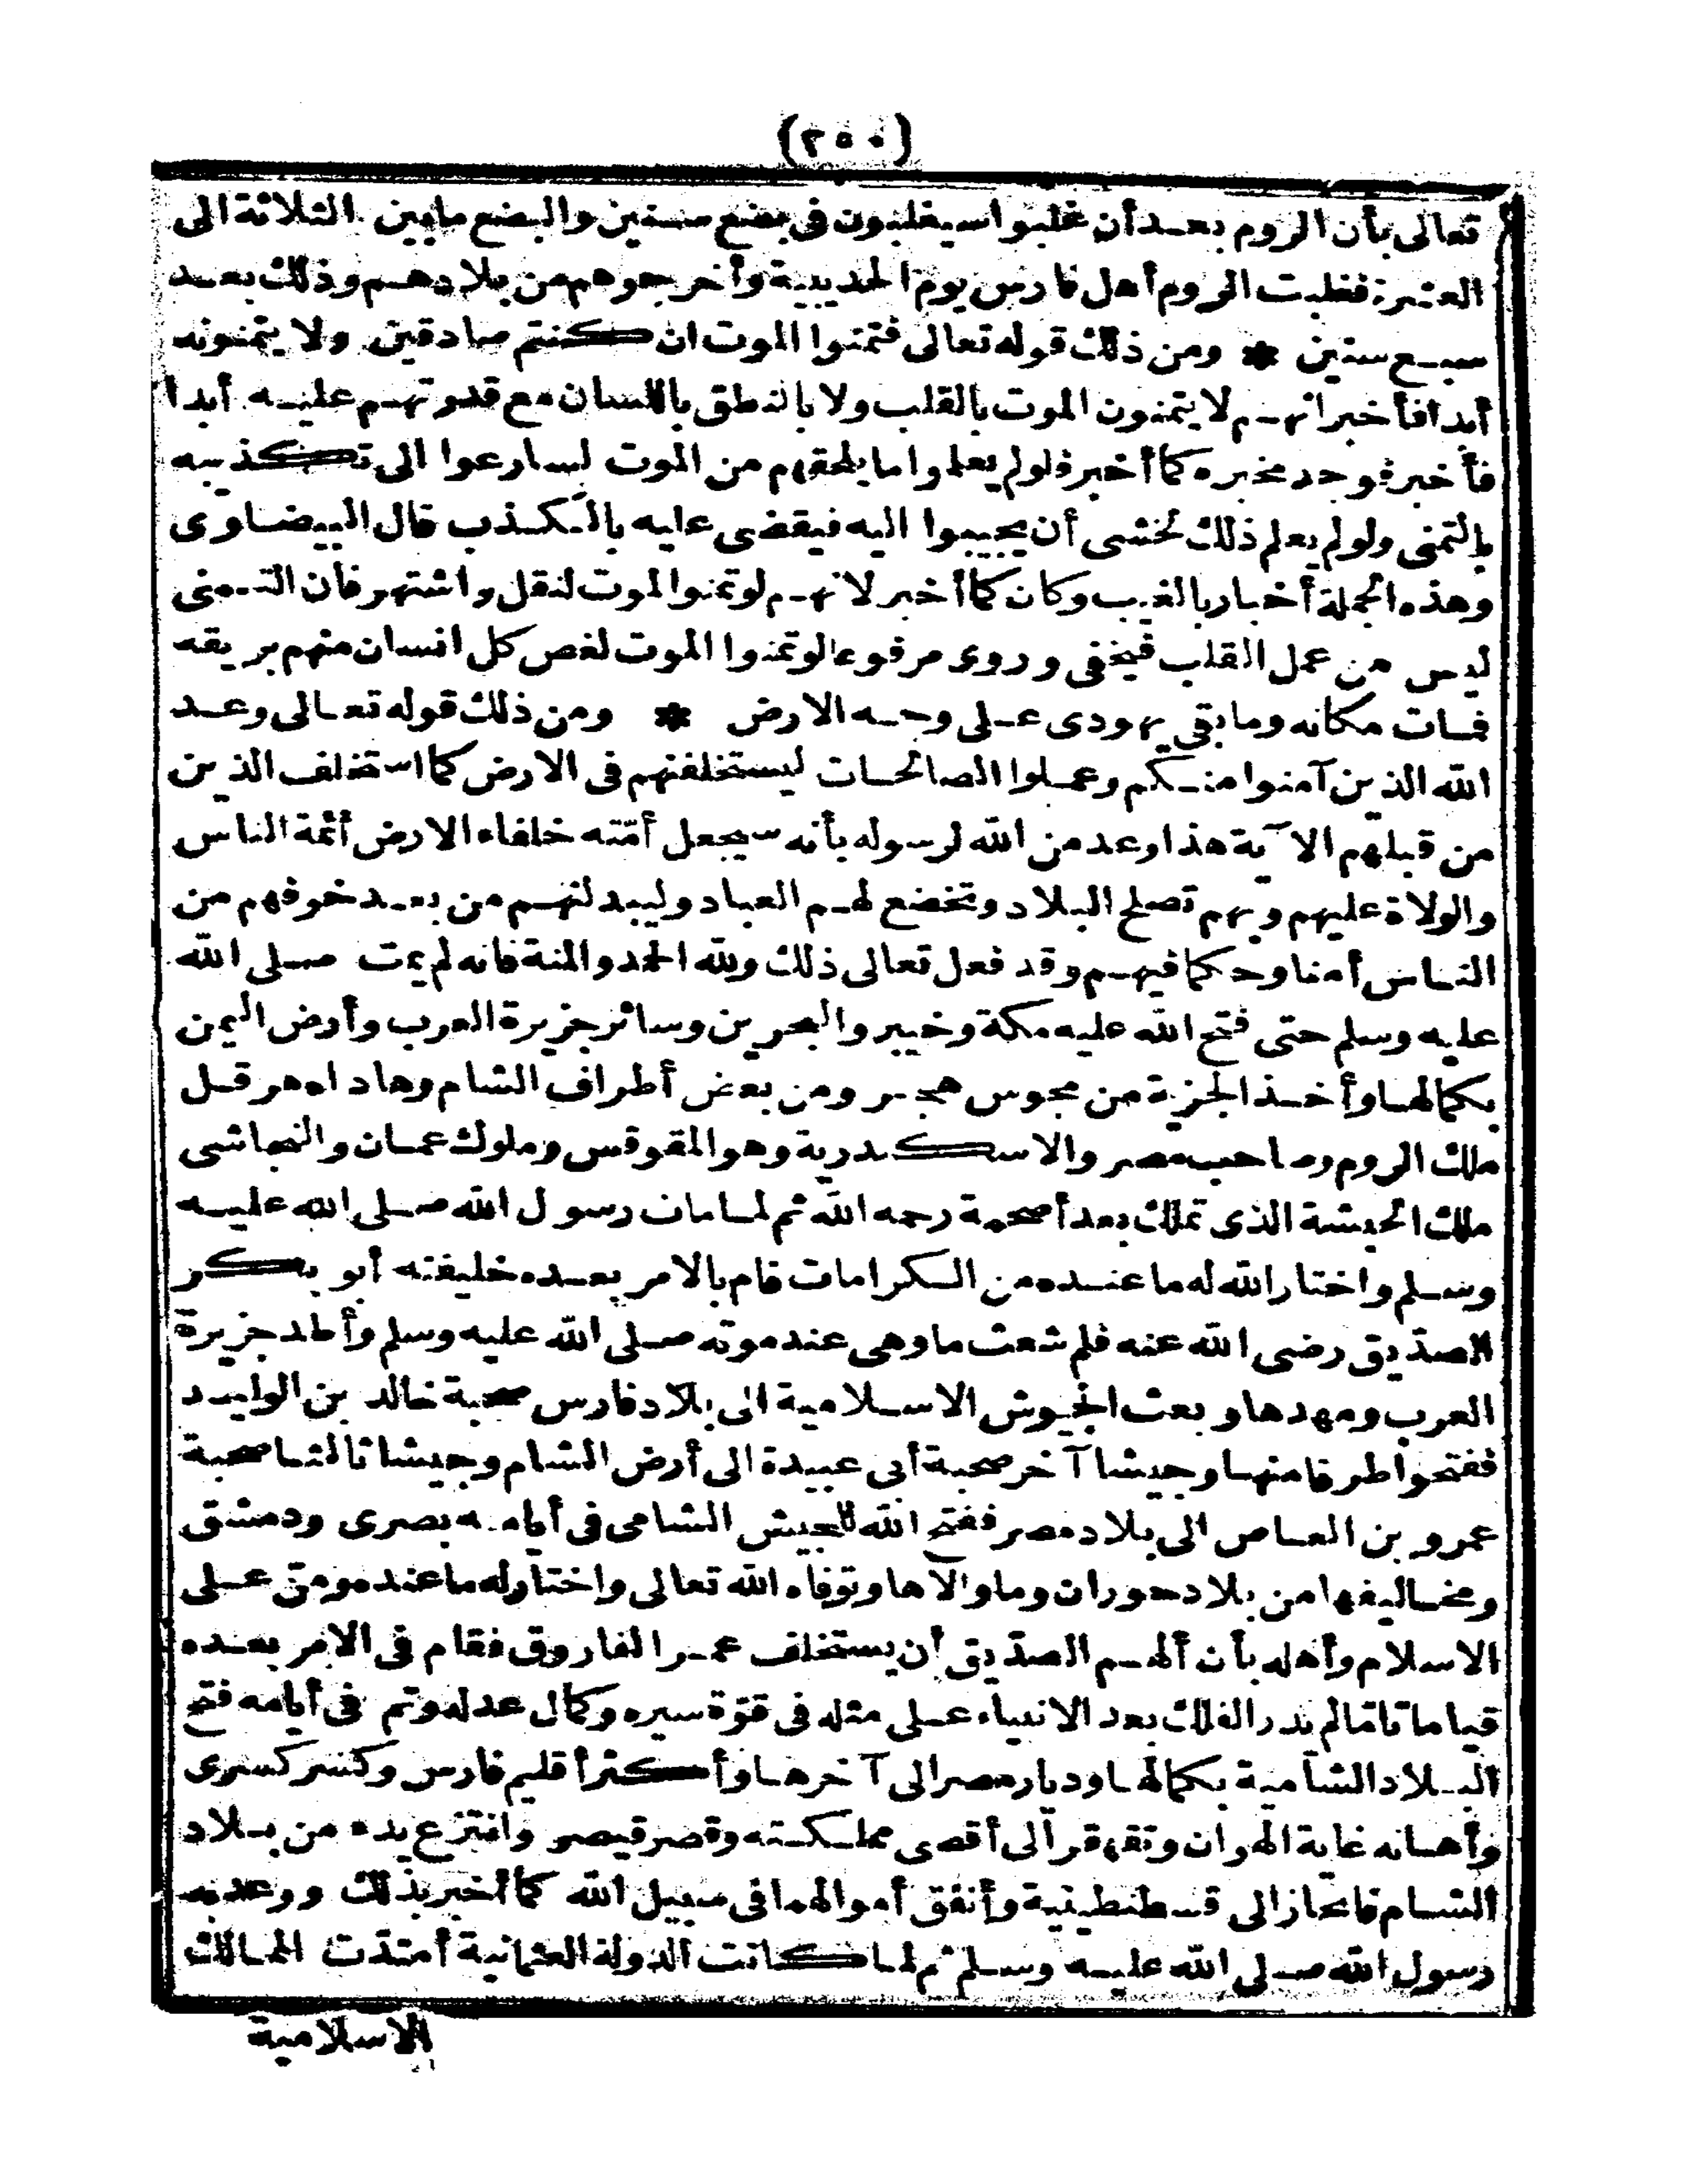 (٢٥٠)
تعالى بأن الروم بعد أن غلبوا سيغلبون فى بضع سنين والبضع ما بين الثلاثة الى
العشرة فغلبت الروم أهل فارس يوم الحديبية وأخرجوهم من بلادهم وذلك بعد
سبع سنين * ومن ذلك قوله تعالى فتمنوا الموت ان كنتم صادقين ولا يتمنونه
أبدا فأخبر انهم لا يتمنون الموت بالقلب ولا بالنطق باللسان مع قدرتهم عليه أبدا
فأخبر فوجد مخبره كما أخبر فلو لم يعلموا ما يلحقهم من الموت لسارعوا الى تكذيبه
بالتمنى ولو لم يعلم ذلك لخشى أن يجيبوا اليه فيقضى عليه بالكذب قال البيضاوى
وهذه الجملة أخبار بالغيب وكان كما أخبر لانهم لو تمنوا الموت لنقل واشتهر فان التمنى
ليس من عمل القلب فيخفى وروى مرفوعا لو تمنوا الموت لغص كل انسان منهم بريقه
فمات مكانه وما بقى يهودى على وجه الارض * ومن ذلك قوله تعالى وعد
الله الذين آمنوا منكم وعملوا الصالحات ليستخلفنهم فى الارض كما استخلف الذين
من قبلهم الآية هذا وعد من الله لرسوله بأنه سيجعل أمّته خلفاء الارض أئمة الناس
والولاة عليهم وبهم تصلح البلاد وتخضع لهم العباد وليبدلنهم من بعد خوفهم من
الناس أمنا وحكما فيهم وقد فعل تعالى ذلك ولله الحمد والمنة فانه لم يمت صلى الله
عليه وسلم حتى فتح الله عليه مكة وخيبر والبحرين وسائر جزيرة العرب وأرض اليمن
بكمالها وأخذ الجزية من مجوس هجر ومن بعض أطراف الشام وهاداه هرقل
ملك الروم وصاحب مصر والاسكندرية وهو المقوقس وملوك عمان والنجاشى
ملك الحبشة الذى تملك بعد أصحمة رحمه الله ثم لما مات رسول الله صلى الله عليه
وسلم واختار الله له ما عنده من الكرامات قام بالامر بعده خليفته أبو بكر
الصدّيق رضى الله عنه فلم شعث ما وهى عند موته صلى الله عليه وسلم وأطد جزيرة
العرب ومهدها وبعث الجيوش الاسلامية الى بلاد فارس صحبة خالد بن الوليد
ففتحوا طرفا منها وجيشا آخر صحبة أبى عبيدة الى أرض الشام وجيشا ثالثا صحبة
عمرو بن العاص الى بلاد مصر ففتح الله للجيش الشامى فى أيامه بصرى ودمشق
ومخاليفها من بلاد حوران وما والاها وتوفاه الله تعالى واختار له ما عنده ومنّ على
الاسلام وأهله بأن ألهم الصدّيق أن يستخلف عمر الفاروق فقام فى الامر بعده
قياما تامّا لم يدر الفلك بعد الانبياء على مثله فى قوّة سيره وكمال عدله وتم فى أيامه فتح
البلاد الشامية بكمالها وديار مصر الى آخرها وأكثر أقليم فارس وكسر كسرى
وأهانه غاية الهوان وتقهقر الى أقصى مملكته وقصر قيصر وانتزع يده من بلاد
الشام فانحاز الى قسطنطينية وأنفق أموالهما فى سبيل الله كما أخبر بذلك ووعد به
رسول الله صلى الله عليه وسلم ثم لما كانت الدولة العثمانية أمتدّت الممالك
الاسلامية